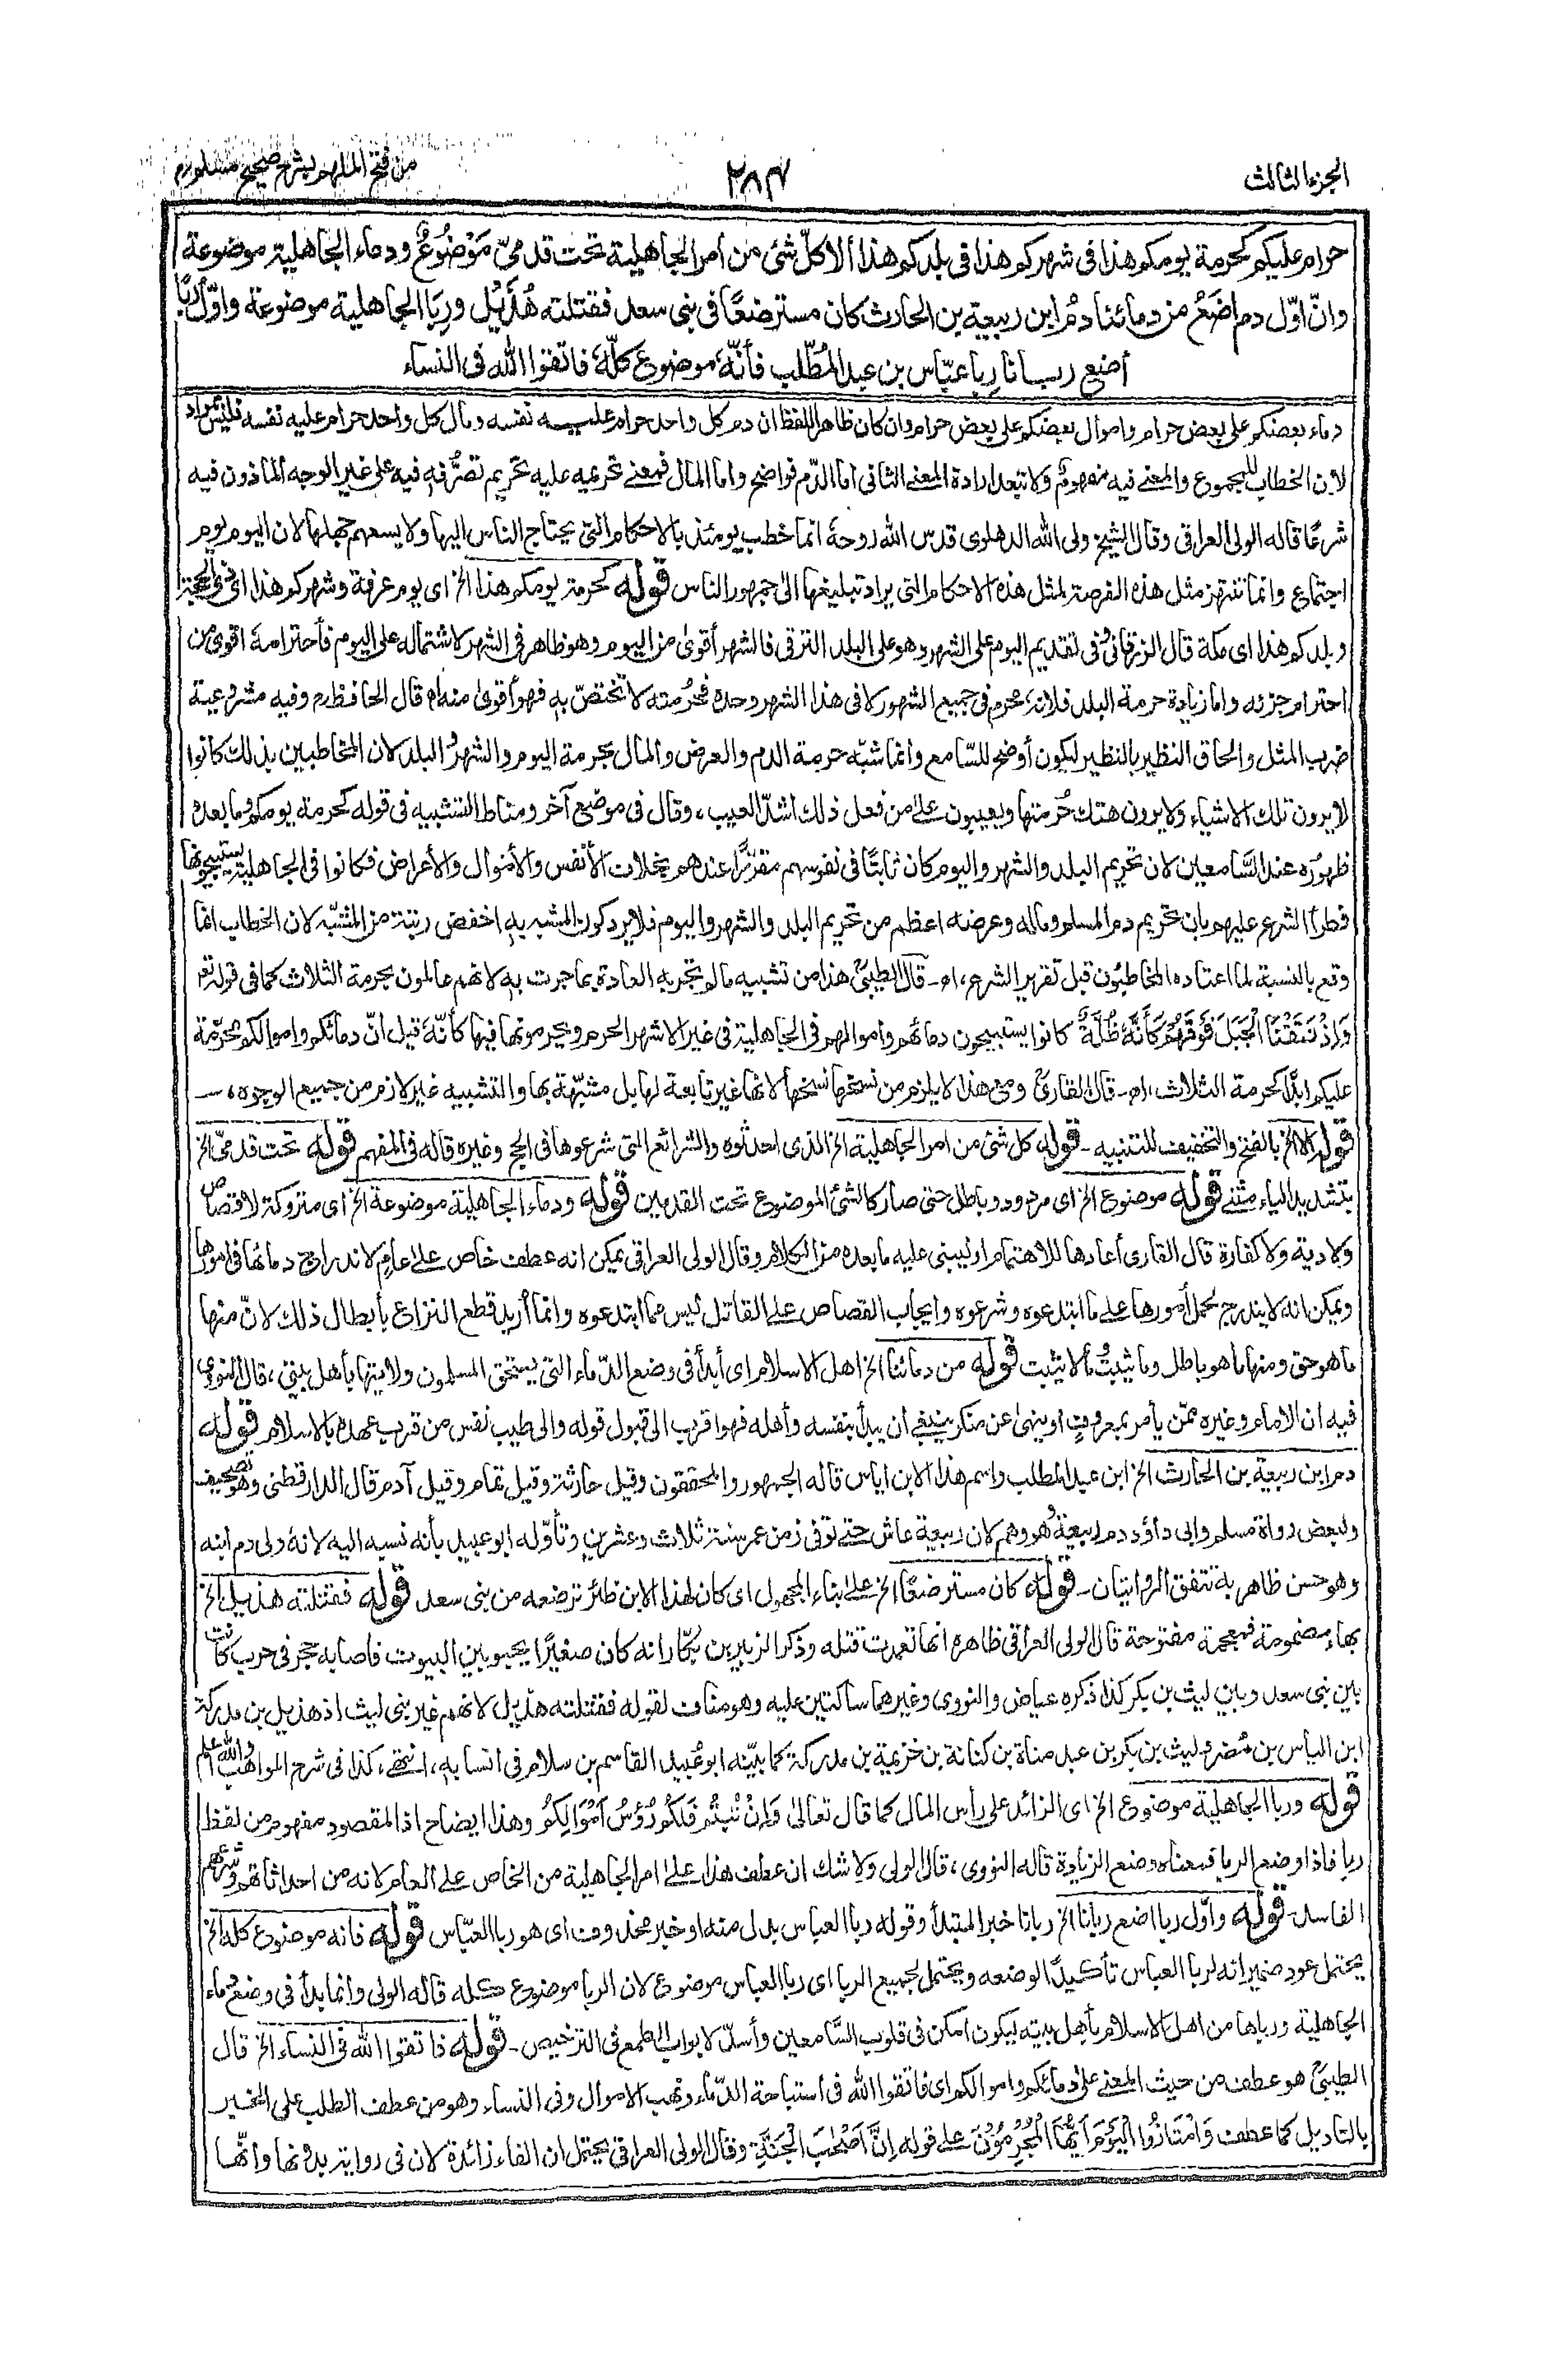 الجزء الثالث
٢٨٤
من فتح الملهم بشرح صحيح مسلم
حرام عليكم كحرمة يومكم هذا فى شهركم هذا فى بلدكم هذا ألا كلّ شئ من أمر الجاهلية تحت قدمىّ مَوْضُوعٌ ودماء الجاهلية موضوعة
وانّ اوّل دم اضَعُ من دمائنا دمُ ابن ربيعة بن الحارث كان مسترضعًا فى بنى سعد فقتلته هُذَيْل ورِبَا الجاهلية موضوعة واوّل ربًا
أضع ربانا رِبا عبّاس بن عبد المُطّلب فأنّه موضوع كلّه فاتّقوا الله فى النساء
دماء بعضكم على بعض حرام واموال بعضكم على بعض حرام وان كان ظاهر اللفظ ان دم كل واحد حرام عليه نفسه ومال كل واحد حرام عليه نفسه فليس بمراد
لان الخطاب للمجموع والمعنى فيه مفهوم ولا تبعد ارادة المعنى الثانى اما الدّم فواضح واما المال فمعنى تحريمه عليه تحريم تصرُّفهِ فيه على غير الوجه المأذون فيه
شرعًا قاله الولى العراقى وقال الشيخ ولى الله الدهلوى قدس الله روحهٗ انما خطب يومئذ بالاحكام التى يحتاج الناس اليها ولا يسعهم جهلها لان اليوم يوم
اجتماع وانما تنتهز مثل هذه الفرصة لمثل هذه الاحكام التى يراد تبليغها الى جمهور الناس قوله كحرمة يومكم هذا الخ اى يوم عرفة وشهركم هذا اى ذى الحجة
وبلدكم هذا اى مكة قال الزرقانىُّ فى تقديم اليوم على الشهر وهو على البلد الترقى فالشهر أقوىٰ من اليوم وهو ظاهر فى الشهر لاشتماله على اليوم فأحترامهٗ اقوىٰ من
احترام جزئه واما زيادة حرمة البلد فلانه محرم فى جميع الشهور لا فى هذا الشهر وحده فحُرمته لا تختصّ به فهو أقوىٰ منه اه قال الحافظ رم وفيه مشروعية
ضرب المثل والحاق النظير بالنظير ليكون أوضح للسّامع وانما شبّه حرمة الدم والعرض والمال بحرمة اليوم والشهر والبلد لان المخاطبين بذلك كانوا
لا يرون تلك الاشياء ولا يرون هتك حُرمتها ويعيبون علىٰ من فعل ذلك اشدّ العيب، وقال فى موضع آخر ومناط التشبيه فى قوله كحرمة يومكم وما بعده
ظهورُه عند السَّامعين لان تحريم البلد والشهر واليوم كان ثابتًا فى نفوسهم مقرّرًا عندهم بخلاف الأنفس والأموال والأعراض فكانوا فى الجاهلية يستبيحونها
فطرأ الشرع عليهم بان تحريم دم المسلم وماله وعرضه اعظم من تحريم البلد والشهر واليوم فلا يرد كون المشبه به اخفض رتبة من المشبّه لان الخطاب انما
وقع بالنسبة لما اعتاده المخاطبُون قبل تقرير الشرع، اه۔ قال الطيبىُّ هذا من تشبيه ما لم تجر به العادة بما جرت به لانهم عالمون بحرمة الثلاث كما فى قوله تعالى
وَاِذْ نَتَقْنَا الْجَبَلَ فَوْقَهُمْ كَأَنَّهٗ ظُلَّةٌ كانوا يستبيحون دمائهم واموالهم فى الجاهلية فى غير الاشهر الحرم ويحرمونها فيها كأنّهٗ قيل انّ دمائكم واموالكم محرّمة
عليكم ابدًا كحرمة الثلاث، اه۔ قال القارىُّ ومع هذا لا يلزم من نسخها نسخها لانها غير تابعة لها بل مشبّهة بها والتشبيه غير لازم من جميع الوجوه،۔
قوله الا الخ بالفتح والتخفيف للتنبيه۔ قوله كل شئ من امر الجاهلية الخ الذى احدثوه والشرائع التى شرعوها فى الحج وغيره قاله فى المفهم قوله تحت قدمىّ الخ
بتشديد الياء مثنى قوله موضوع الخ اى مردود وباطل حتى صار كالشئ الموضوع تحت القدمين قوله ودماء الجاهلية موضوعة الخ اى متروكة لا قصاص
ولا دية ولا كفارة قال القارى أعادها للاهتمام او ليبنى عليه ما بعده من الكلام وقال الولى العراقى يمكن انه عطف خاص علىٰ عامٍ لاندراج دمائها فى امورها
ويمكن انه لا يندرج بحمل أمورها على ما ابتدعوه وشرعوه وايجاب القصاص على القاتل ليس مما ابتدعوه وانما أريد قطع النزاع بأبطال ذلك لانّ منها
ما هو حق ومنها ما هو باطل وما يثبتُ وما لا يثبت قوله من دمائنا الخ اهل الاسلام اى أبدأ فى وضع الدّماء التى يستحق المسلمون ولايتها بأهل بيتى، قال النووى
فيه ان الامام وغيره ممّن يأمر بمعروفٍ او ينهىٰ عن منكر ينبغى أن يبدأ بنفسه وأهله فهو اقرب الى قبول قوله والى طيب نفس من قرب عهده بالاسلام قوله
دم ابن ربيعة بن الحارث الخ ابن عبد المطلب واسم هذا الابن اياس قاله الجمهور والمحققون وقيل حارثة وقيل تمام وقيل آدم قال الدارقطنى وهو تصحيف
ولبعض رواة مسلم وابى داؤد دم ربيعة وهو وهم لان ربيعة عاش حتى توفى زمن عمر سنة ثلاث وعشرين وتأوّله ابو عبيد بأنه نسبه اليه لانهٗ ولى دم ابنه
وهو حسن ظاهر به تتفق الروايتان۔ قوله كان مسترضعًا الخ علىٰ بناء المجهول اى كان لهذا الابن ظئر ترضعه من بنى سعد قوله فقتلته هذيل الخ
بهاء مضمومة فمعجمة مفتوحة قال الولى العراقى ظاهره انها تعمدت قتله وذكر الزبير بن بكّار انه كان صغيرًا يحبو بين البيوت فاصابه حجر فى حرب كانت
بين بنى سعد وبين ليث بن بكر كذا ذكره عياض والنووى وغيرهما ساكتين عليه وهو مناف لقوله فقتلته هذيل لانهم غير بنى ليث اذ هذيل بن مدركة
ابن الياس بن مُضر وليث بن بكر بن عبد مناة بن كنانة بن خزيمة بن مدركة كما بيّنه ابو عُبيد القاسم بن سلام فى انسابه، انتهى، كذا فى شرح المواهب والله اعلم
قوله وربا الجاهلية موضوع الخ اى الزائد على رأس المال كما قال تعالىٰ وَاِنْ تُبْتُمْ فَلَكُمْ رُؤُسُ اَمْوَالِكُمْ وهذا ايضاح اذ المقصود مفهوم من لفظ
ربا فاذا وضع الربا فمعناه وضع الزيادة قاله النووى، قال الولى ولا شك ان عطف هذا علىٰ امر الجاهلية من الخاص على العام لانه من احداثاتهم وشرعهم
الفاسد۔ قوله واوّل ربا اضع ربانا الخ ربانا خبر المبتدأ وقوله ربا العباس بدل منه او خبر محذوف اى هو ربا العبّاس قوله فانه موضوع كله الخ
يحتمل عود ضمير انه لربا العباس تأكيدًا لوضعه ويحتمل لجميع الربا اى ربا العباس موضوع لان الربا موضوع كله قاله الولى وانما بدأ فى وضع دماء
الجاهلية ورباها من اهل الاسلام بأهل بيته ليكون امكن فى قلوب السَّامعين وأسدّ لابواب الطمع فى الترخيص۔ قوله فاتقوا الله فى النساء الخ قال
الطيبىُّ هو عطف من حيث المعنى على دمائكم واموالكم اى فاتقوا الله فى استباحة الدّماء ونهب الاموال وفى النساء وهو من عطف الطلب على الخبر
بالتاويل كما عطف وَامْتَازُوا الْيَوْمَ اَيُّهَا الْمُجْرِمُوْنَ على قوله اِنَّ اَصْحٰبَ الْجَنَّةِ وقال الولى العراقى يحتمل ان الفاء زائدة لان فى رواية بدونها وانّها